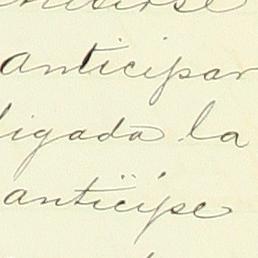 anticipar
ligada la
anticipe